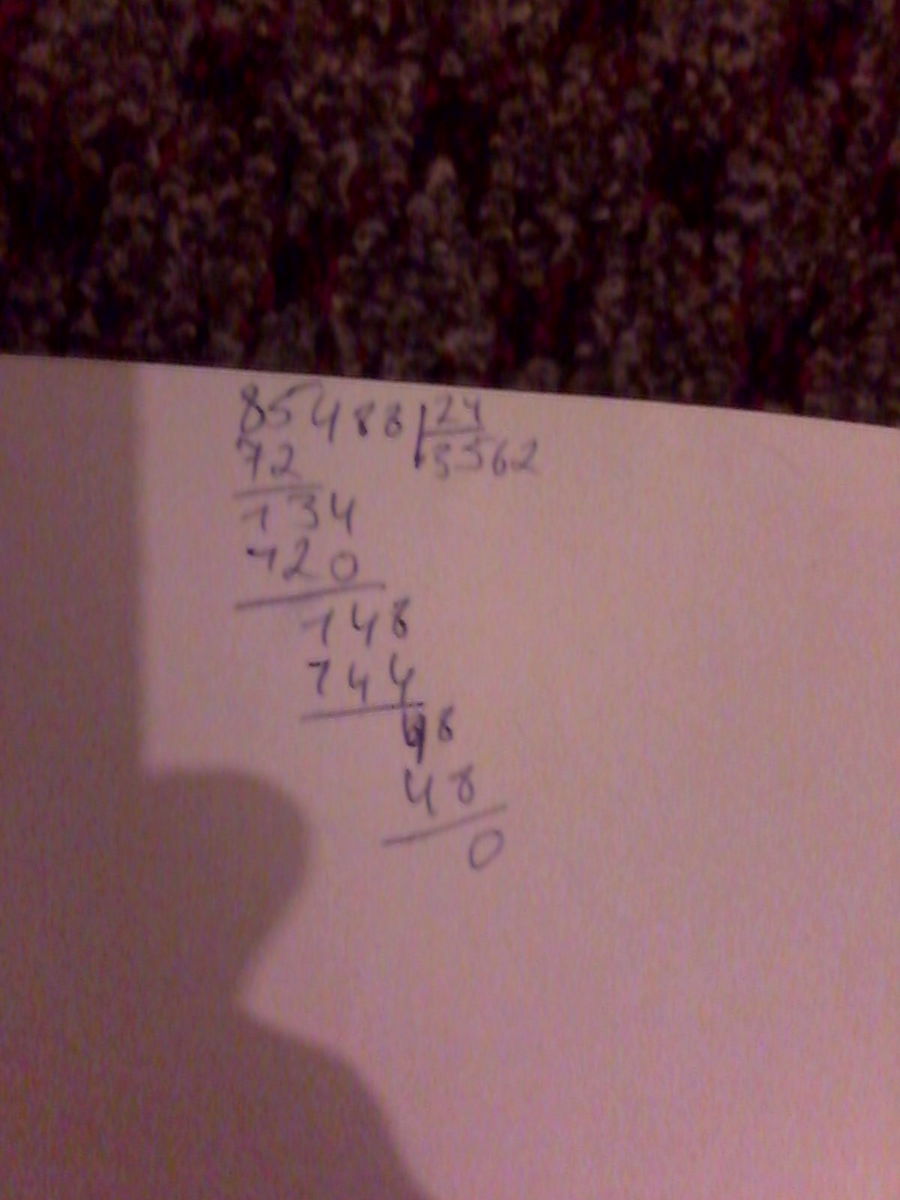 85488 24
72 3562
134
120
148
144
48
48
0